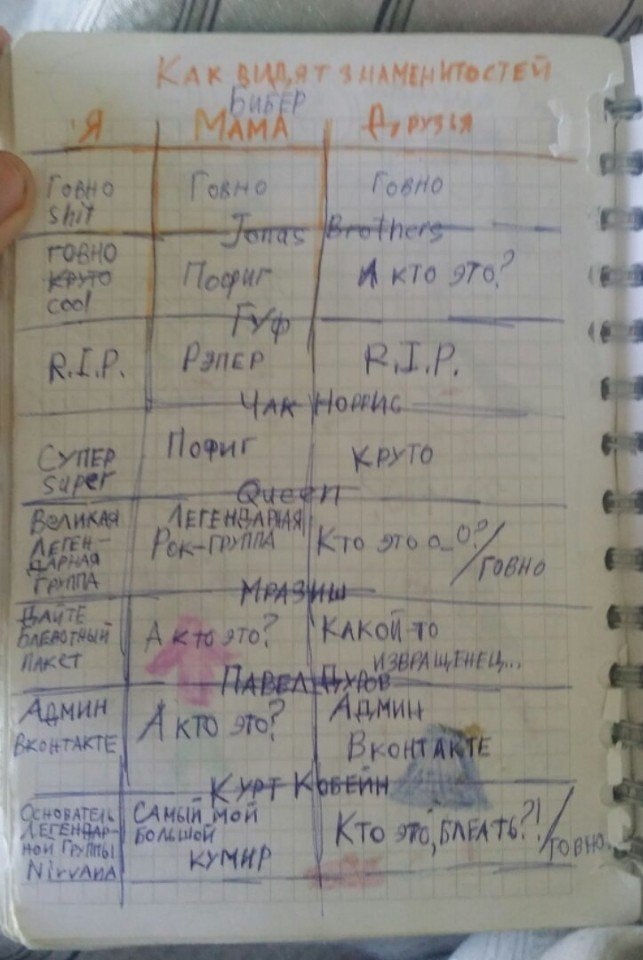 Как видят знаменитостей
Бибер
Я Мама Друзья
Говно Говно Говно
shit
Jonas Brothers
Говно
круто Пофиг А кто это?
cool
Гуф
R.I.P. Рэпер R.I.P.
Чак Норрис
Супер Пофиг круто
super
Queen
Великая Легендарная
леген- Рок-группа Кто это о_О?/
дарная говно
группа
Мразиш
Дайте А кто это? Какой-то
блевотный извращенец...
пакет
Павел Дуров
Админ А кто это? Админ
Вконтакте Вконтакте
Курт Кобейн
Основатель Самый мой
легендар- большой Кто это, блеать?!/
ной группы кумир говно
Nirvana